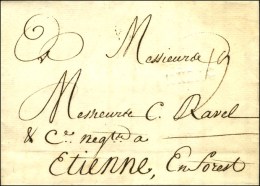 Messieurs
Messieurs C. Ravel
& Cie negts a
Etienne, En forest